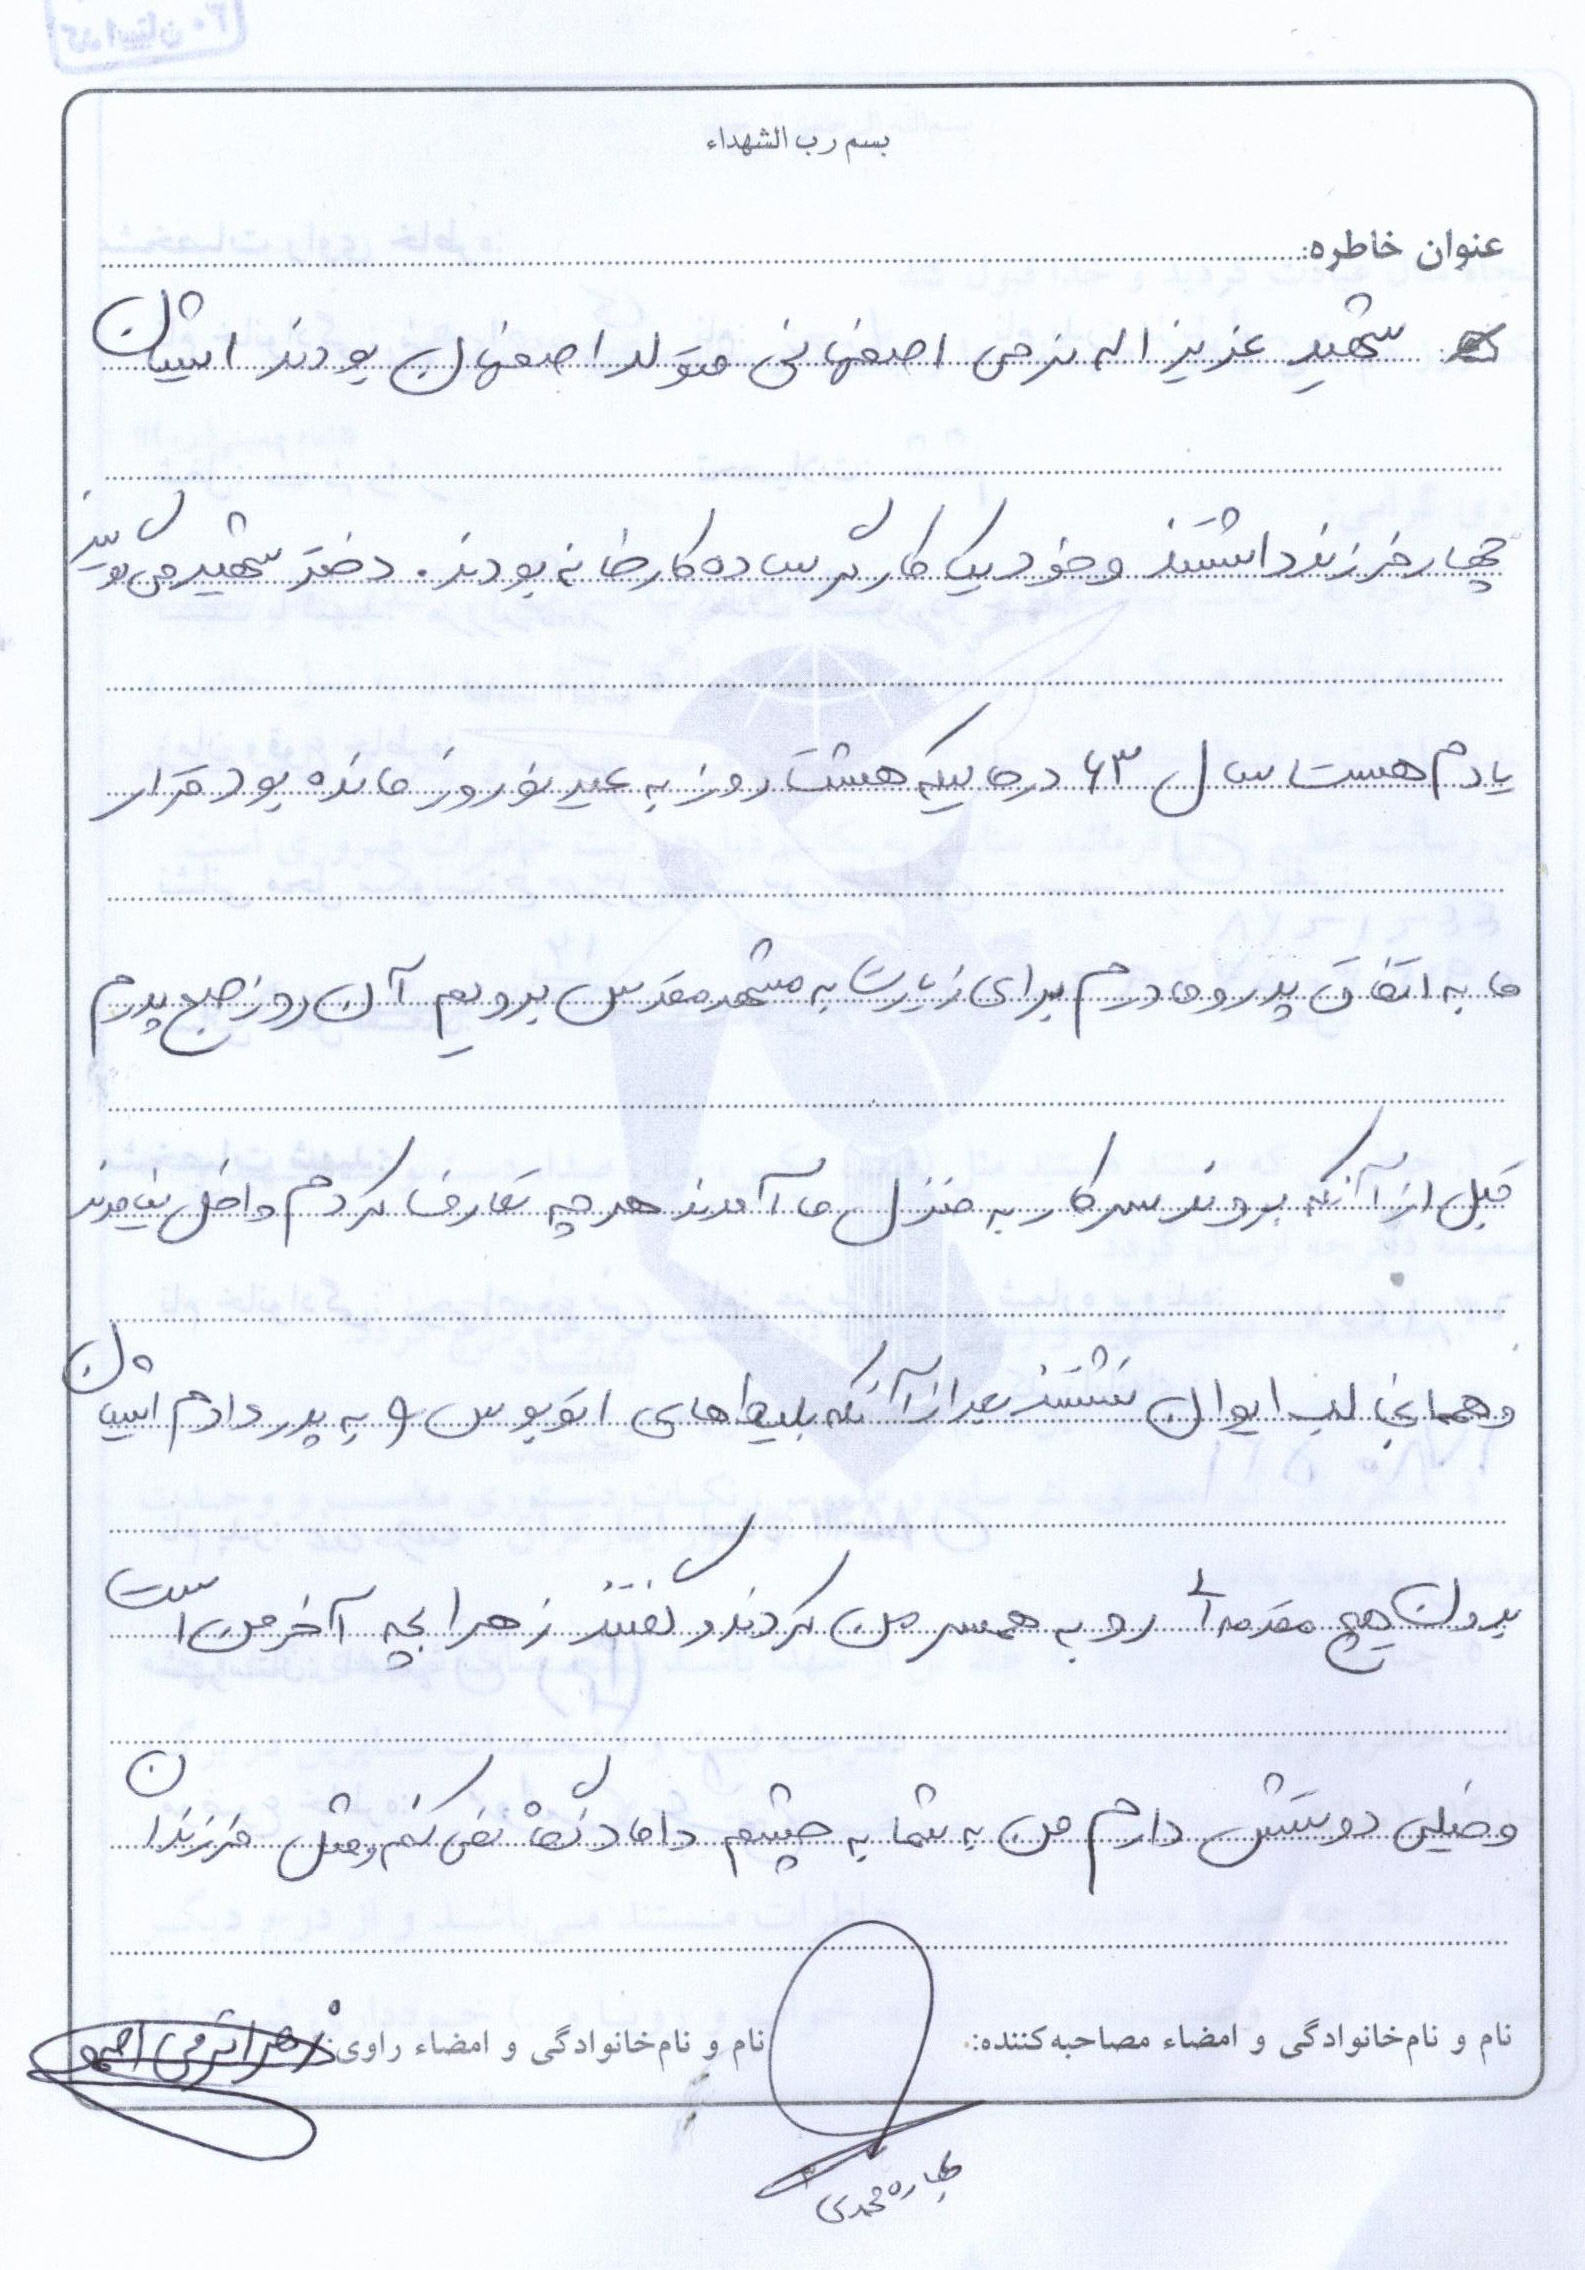 کد استان ۳۰
بسم رب الشهداء
عنوان خاطره:
شهید عزیز اله نرمی اصفهانی متولد اصفهان بودند ایشان
چهار فرزند داشتند و خود یک کارگر ساده کارخانه بودند. دختر شهید می گوید
یادم هست سال ۶۳ درحالیکه هشت روز به عید نوروز مانده بود قرار
ما به اتفاق پدر و مادرم برای زیارت به مشهد مقدس برویم آن روز صبح پدرم
قبل از آنکه بروند سر کار به منزل ما آمدند هرچه تعارف کردم داخل نیامدند
و همانجا لب ایوان نشستند بعد از آنکه بلیط های اتوبوس و به پدر دادم ایشان
بدون هیچ مقدمه ای رو به همسر من کردند و گفتند زهرا بچه آخر من است
و خیلی دوستش دارم من به شما به چشم داماد نگاه نمی کنم و مثل فرزندان
نام و نام‌خانوادگی و امضاء مصاحبه‌کننده:
نام و نام‌خانوادگی و امضاء راوی: زهرا نرمی
محمدی